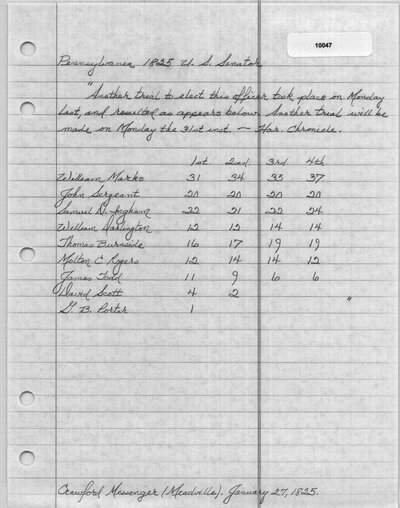 10047
Pennsylvania 1825 U. S. Senator
"Another trial to elect this officer took place on Monday
last, and resulted as appears below. Another trial will be
made on Monday the 31st inst. — Har. Chronicle.
1st 2nd 3rd 4th
William Marks 31 34 35 37
John Sergeant 20 20 20 20
Samuel D. Ingham 22 21 22 24
William Darlington 12 12 14 14
Thomas Burnside 16 17 19 19
Molton C Rogers 12 14 14 12
James Todd 11 9 6 6
David Scott 4 2
G. B. Porter 1
"
Crawford Messenger (Meadville). January 27, 1825.